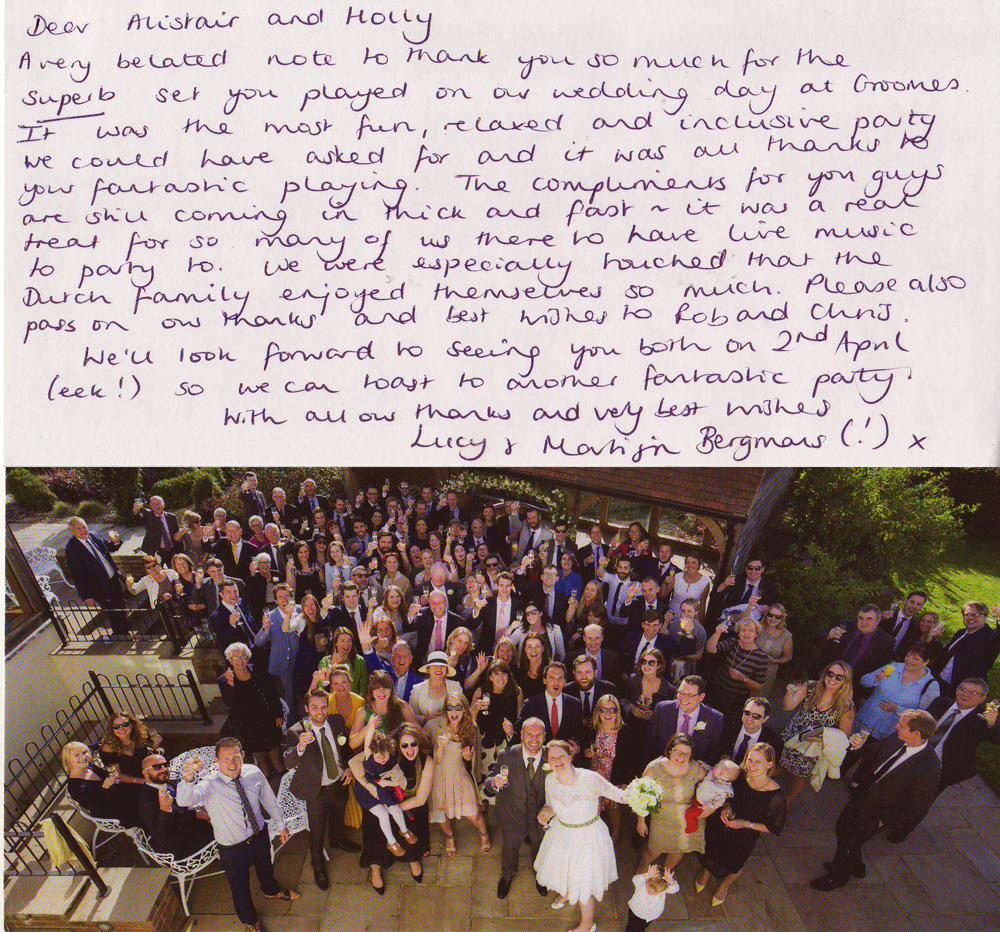 Dear Alistair and Holly
A very belated note to thank you so much for the
superb set you played on our wedding day at Groomes.
It was the most fun, relaxed and inclusive party
we could have asked for and it was all thanks to
your fantastic playing. The compliments for you guys
are still coming in thick and fast ~ it was a real
treat for so many of us there to have live music
to party to. We were especially touched that the
Dutch family enjoyed themselves so much. Please also
pass on our thanks and best wishes to Rob and Chris.
We'll look forward to seeing you both on 2nd April
(eek!) so we can toast to another fantastic party.
With all our thanks and very best wishes
Lucy & Martijn Bergmans (!) x